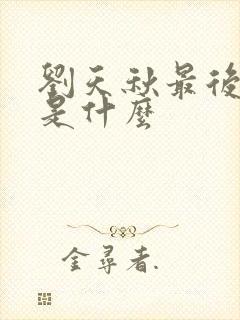 劉天秋最後
是什麼
金尋者.